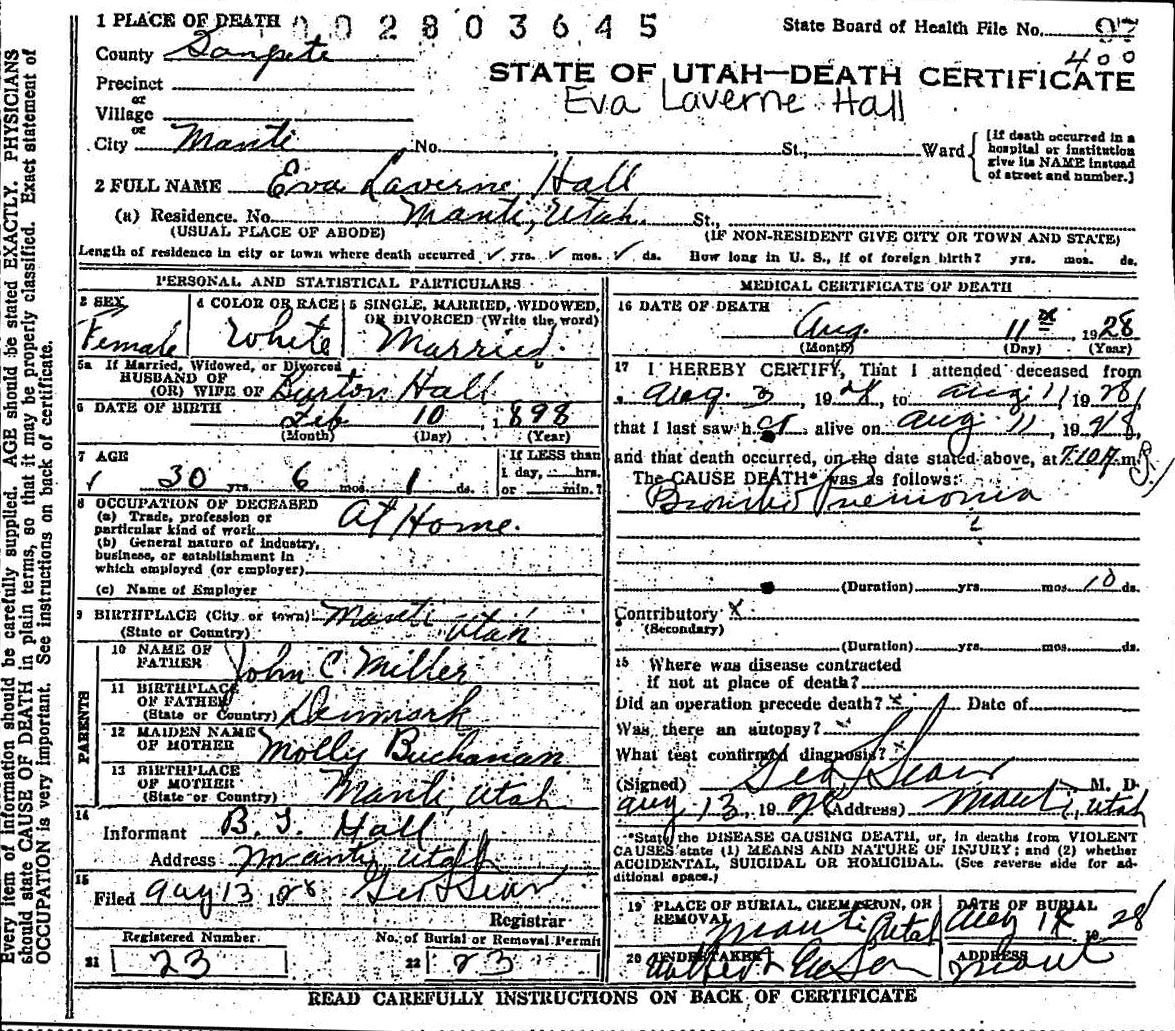 Every item of information should be carefully supplied. AGE should be stated EXACTLY. PHYSICIANS
should state CAUSE OF DEATH in plain terms, so that it may be properly classified. Exact statement of
OCCUPATION is very important. See instructions on back of certificate.
1 PLACE OF DEATH 002803645 State Board of Health File No. 97
County Sanpete 400
STATE OF UTAH—DEATH CERTIFICATE
Precinct
or
Village Eva Laverne Hall
or
City Manti No. , St., Ward
[If death occurred in a
hospital or institution
give its NAME instead
of street and number.]
2 FULL NAME Eva Laverne Hall
(a) Residence. No. Manti, Utah. St.,
(USUAL PLACE OF ABODE) (IF NON-RESIDENT GIVE CITY OR TOWN AND STATE)
Length of residence in city or town where death occurred ✓ yrs. ✓ mos. ✓ ds. How long in U. S., if of foreign birth? yrs. mos. ds.
PERSONAL AND STATISTICAL PARTICULARS
3 SEX 4 COLOR OR RACE 5 SINGLE, MARRIED, WIDOWED,
OR DIVORCED (Write the word)
Female White Married
5a If Married, Widowed, or Divorced
HUSBAND OF
(OR) WIFE OF Burton Hall
6 DATE OF BIRTH Feb 10 1898
(Month) (Day) (Year)
7 AGE If LESS than
1 day, hrs.
30 yrs. 6 mos. 1 ds. or min.?
8 OCCUPATION OF DECEASED
(a) Trade, profession or
particular kind of work At Home.
(b) General nature of industry,
business, or establishment in
which employed (or employer)
(c) Name of Employer
9 BIRTHPLACE (City or town) Manti
(State or Country) Utah
PARENTS
10 NAME OF
FATHER John C. Miller
11 BIRTHPLACE
OF FATHER
(State or Country) Denmark
12 MAIDEN NAME
OF MOTHER Molly Buchanan
13 BIRTHPLACE
OF MOTHER
(State or Country) Manti, Utah
14
Informant Hall
Address Manti, Utah
15
Filed Aug 13 1928 Geo L Sears
Registrar
Registered Number No. of Burial or Removal Permit
21 23 22 23
MEDICAL CERTIFICATE OF DEATH
16 DATE OF DEATH
Aug. 11 1928
(Month) (Day) (Year)
17 I HEREBY CERTIFY, That I attended deceased from
Aug. 3, 1928, to Aug. 11, 1928,
that I last saw her alive on Aug 11, 1928,
and that death occurred, on the date stated above, at m.
The CAUSE DEATH* was as follows:
Pnemonia
(Duration) yrs. mos. 10 ds.
Contributory x
(Secondary)
(Duration) yrs. mos. ds.
18 Where was disease contracted
if not at place of death?
Did an operation precede death? x Date of
Was there an autopsy? x
What test confirmed diagnosis? x
(Signed) Geo L Sears M. D.
Aug 13, 1928 (Address) Manti, Utah
*State the DISEASE CAUSING DEATH, or, in deaths from VIOLENT
CAUSES state (1) MEANS AND NATURE OF INJURY; and (2) whether
ACCIDENTAL, SUICIDAL OR HOMICIDAL. (See reverse side for ad-
ditional space.)
19 PLACE OF BURIAL, CREMATION, OR DATE OF BURIAL
REMOVAL Manti, Utah Aug 1928
20 UNDERTAKER ADDRESS
Manti
READ CAREFULLY INSTRUCTIONS ON BACK OF CERTIFICATE